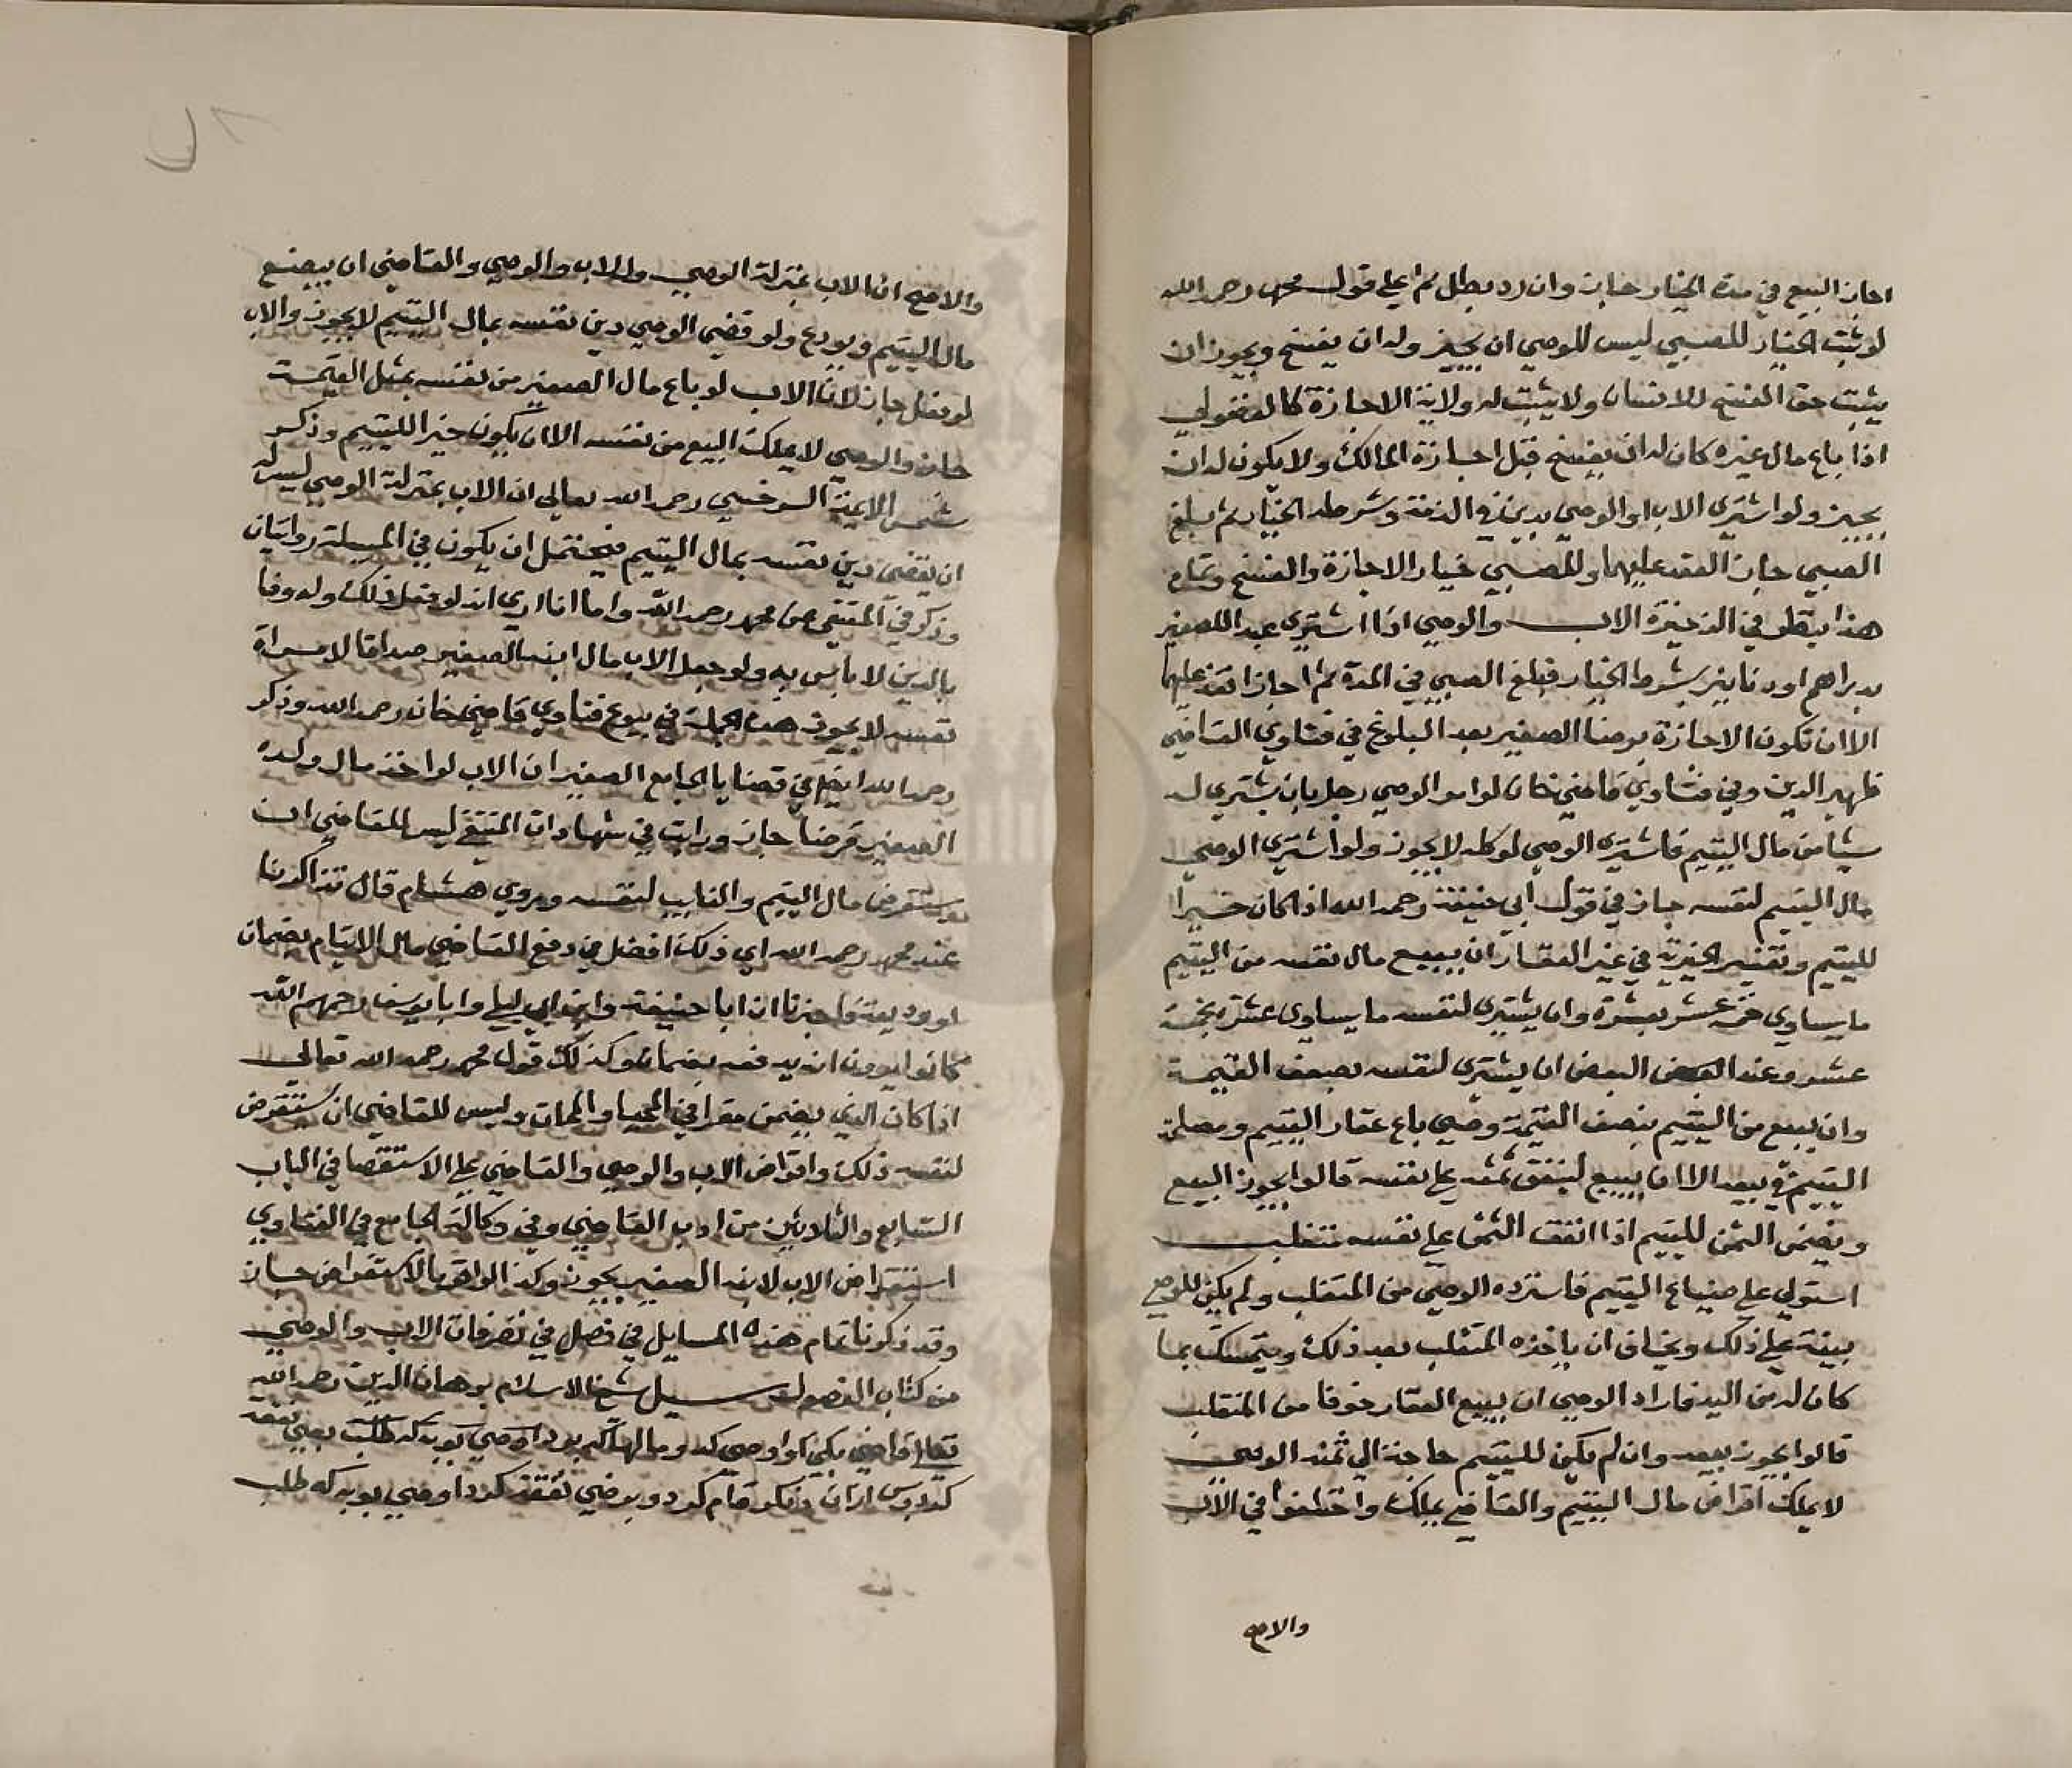 اجاز البيع في مدة الخيار جاز وان رد بطل ثم على قول محمد رحمه الله
لو ثبت الخيار للصبي ليس للوصي ان يجيز وله ان يفسخ ويجوز ان
يثبت حق الفسخ للانسان ولا يثبت له ولاية الاجازة كالفضولي
اذا باع مال غيره كان له ان يفسخ قبل اجازة المالك ولا يكون له ان
يجيز ولو اشترى الاب او الوصي بدين في الذمة وشرط الخيار ثم بلغ
الصبي جاز العقد عليهما وللصبي خيار الاجازة والفسخ وتمام
هذا ينظر في الذخيرة الاب والوصي اذا اشترى عبدا للصغير
بدراهم او دنانير بشرط الخيار فبلغ الصبي في المدة ثم اجازا نفذ عليهما
الا ان تكون الاجازة برضا الصغير بعد البلوغ في فتاوي القاضي
ظهير الدين وفي فتاوي قاضي خان لو امر الوصي رجل بان يشتري له
شيا من مال اليتيم فاشترى الوصي لموكله لا يجوز ولو اشترى الوصي
مال اليتيم لنفسه جاز في قول ابي حنيفة رحمه الله اذا كان خيرا
لليتيم وتفسير الخيرية في غير العقار ان يبيع مال نفسه من اليتيم
ما يساوي خمسة عشر بعشرة وان يشتري لنفسه ما يساوي عشرة بخمسة
عشر وعند البعض ان يشتري لنفسه بضعف القيمة
وان يبيع من اليتيم بنصف القيمة وصي باع عقار اليتيم ومصلحة
اليتيم في بيعه الا انه يبيع لينفق ثمنه على نفسه قالوا يجوز البيع
ويضمن الثمن لليتيم اذا انفق الثمن على نفسه متغلب
استولي على ضياع اليتيم فاسترده الوصي من المتغلب ولم يكن للوصي
بينة على ذلك ويخاف ان ياخذه المتغلب بعد ذلك ويتمسك بما
كان له من اليد فاراد الوصي ان يبيع العقار خوفا من المتغلب
قالوا يجوز بيعه وان لم يكن لليتيم حاجة الى ثمنه الوصي
لا يملك اقراض مال اليتيم والقاضي يملك واختلفوا في الاب
والاصح
والاصح ان الاب بمنزلة الوصي والاب والوصي والقاضي ان يبضع
مال اليتيم ويودع ولو قضي الوصي دين نفسه بمال اليتيم لا يجوز والاب
لو فعل جاز لان الاب لو باع مال الصغير من نفسه بمثل القيمة
جاز والوصي لا يملك البيع من نفسه الا ان يكون خيرا لليتيم وذكر
شمس الايمة السرخسي رحمه الله تعالي ان الاب بمنزلة الوصي ليس له
ان يقضي دين نفسه بمال اليتيم فيحتمل ان يكون في المسيلة روايتان
وذكر في المنتقى عن محمد رحمه الله واما انا اري انه لو فعل ذلك وله وفا
بالدين لا باس به ولو جعل الاب مال ابنه الصغير صداقا لامراة
نفسه لا يجوز هذه الجملة في بيوع فتاوي قاضي خان رحمه الله وذكر
رحمه الله ايضا في قضايا الجامع الصغير ان الاب لو اخذ مال ولده
الصغير قرضا جاز ورايت في شهادات المنتقى ليس للقاضي ان
يستقرض مال اليتيم والغايب لنفسه وروي هشام قال تذاكرنا
عند محمد رحمه الله اي ذلك افضل في دفع القاضي مال الايتام بضمان
او وديعة واخبرنا ان ابا حنيفة وابن ابي ليلي وابا يوسف رحمهم الله
كانوا يرون ان يدفعه بضمان وكذلك قول محمد رحمه الله تعالى
اذا كان الذي يضمن مقرا في المحيا والممات وليس للقاضي ان يستقرض
لنفسه ذلك واقراض الاب والوصي والقاضي على الاستقصا في الباب
السابع والثلاثين من ادب القاضي وفي وكالة الجامع في الفتاوي
استقراض الاب لابنه الصغير يجوز وكذا لو اقر بالاستقراض جاز
وقد ذكرنا تمام هذه المسايل في فصل في تصرفات الاب والوصي
من كتاب الفصول سيل شيخ الاسلام برهان الدين رحمه الله
تعالى قاضي يكي را وصي كرد ومالها كه بود او صي بوبه كه طلب بعضي نفقه
كرد وس ازان ديكر قام كرد وبعضي نفقه كرد او صي بوبه كه طلب